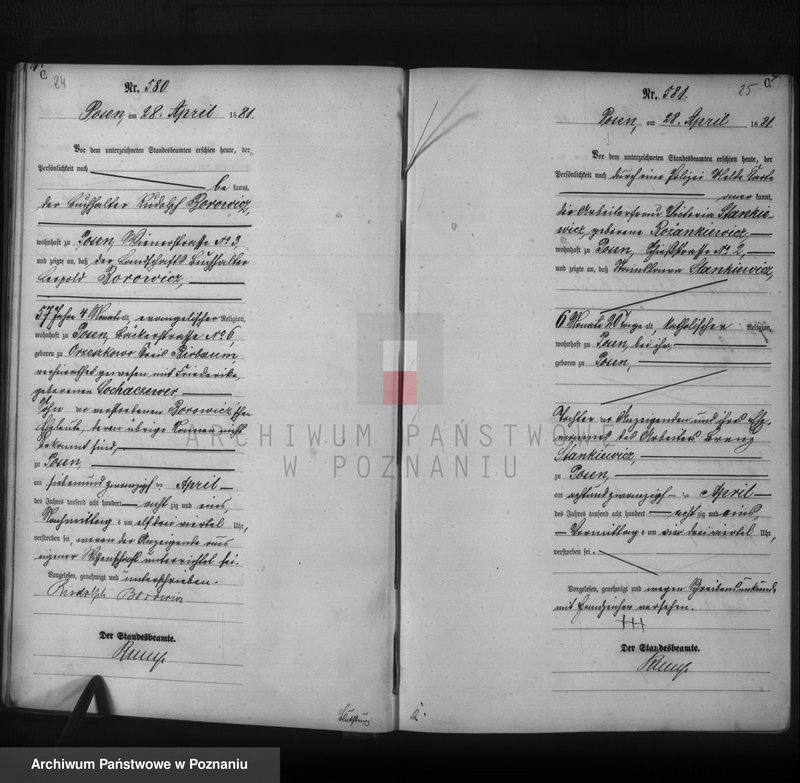 C.
24
Nr. 580
Posen, am 28. April 1881
Vor dem unterzeichneten Standesbeamten erschien heute, der
Persönlichkeit nach
be kannt,
der Buchhalter Rudolph Borowicz,
wohnhaft zu Posen, Wienerstrasse No 3,
und zeigte an, daß der Landschafts Buchhalter
Leopold Borowicz,
57 Jahre 4 Monate alt, evangelischer Religion,
wohnhaft zu Posen, Bäckerstrasse No 6,
geboren zu Orzeszkowo Kreis Birbaum
verheirathet gewesen mit Friederike,
geborenen Sochaczewer
Sohn der verstorbenen Borowicz'schen
Eheleute, deren übrige Namen nicht
bekannt sind,
zu Posen,
am siebenundzwanzigsten April
des Jahres tausend acht hundert acht zig und eins,
Nachmittag s um elf drei viertel Uhr,
verstorben sei, wovon der Anzeigende aus
eigener Wissenschaft unterrichtet sei.
Vorgelesen, genehmigt und unterschrieben.
Rudolph Borowicz
Der Standesbeamte.
25
C.
Nr. 581.
Posen, am 28. April 1881
Vor dem unterzeichneten Standesbeamten erschien heute, der
Persönlichkeit nach durch eine Polizei Melde Karte
aner kannt,
die Arbeiterfrau Victoria Stankie
wicz, geborene Rożankiewicz,
wohnhaft zu Posen, Schießstrasse No 2,
und zeigte an, daß Stanislawa Stankiewicz,
6 Monate 20 Tage alt, katholischer Religion,
wohnhaft zu Posen, bei ihr,
geboren zu Posen,
Tochter der Anzeigenden und ihres Ehe-
mannes des Arbeiter
Stankiewicz,
zu Posen,
am achtundzwanzigsten April
des Jahres tausend acht hundert acht zig und eins,
Vormittag s um drei viertel Uhr,
verstorben sei.
Vorgelesen, genehmigt und wegen Schreibensunkunde
mit Handzeichen versehen.
+++
Der Standesbeamte.
ARCHIWUM PAŃSTWOWE
W POZNANIU
Archiwum Państwowe w Poznaniu